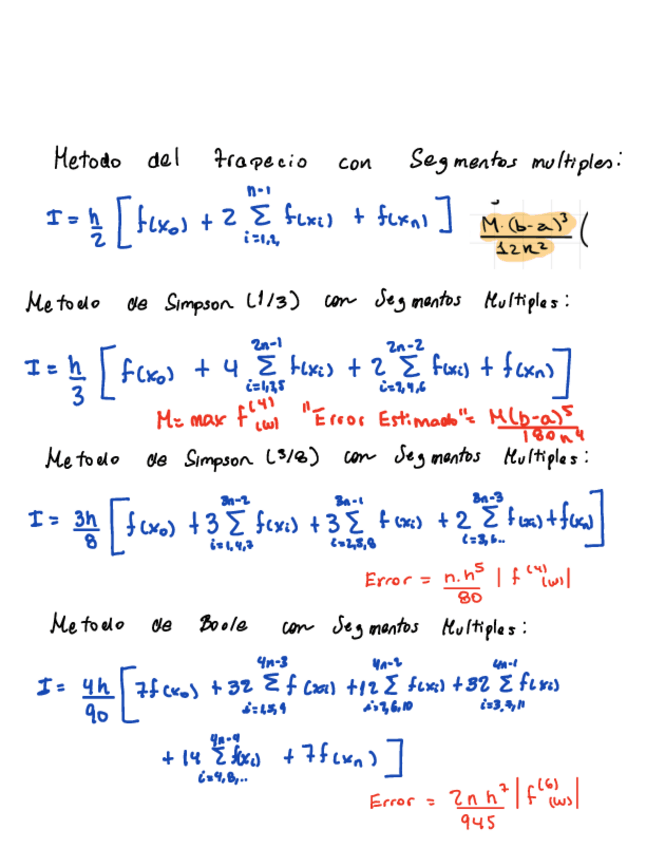 Metodo del trapecio con Segmentos multiples:
I = h/2 [ f(x₀) + 2 Σ_{i=1,2,}^{n-1} f(xi) + f(xn) ] M·(b-a)³/12n² (
Metodo de Simpson (1/3) con Segmentos Multiples:
I = h/3 [ f(x₀) + 4 Σ_{i=1,3,5}^{2n-1} f(xi) + 2 Σ_{i=2,4,6}^{2n-2} f(xi) + f(xn) ]
M = max f⁽⁴⁾(w) "Error Estimado" = M(b-a)⁵/180n⁴
Metodo de Simpson (3/8) con Segmentos Multiples:
I = 3h/8 [ f(x₀) + 3 Σ_{i=1,4,7}^{3n-2} f(xi) + 3 Σ_{i=2,5,8}^{3n-1} f(xi) + 2 Σ_{i=3,6..}^{3n-3} f(xi) + f(xn) ]
Error = n.h⁵/80 | f⁽⁴⁾(w) |
Metodo de Boole con Segmentos Multiples:
I = 4h/90 [ 7f(x₀) + 32 Σ_{i=1,5,9}^{4n-3} f(xi) + 12 Σ_{i=2,6,10}^{4n-2} f(xi) + 32 Σ_{i=3,7,11}^{4n-1} f(xi)
+ 14 Σ_{i=4,8,..}^{4n-4} f(xi) + 7f(xn) ]
Error = 2n h⁷/945 | f⁽⁶⁾(w) |